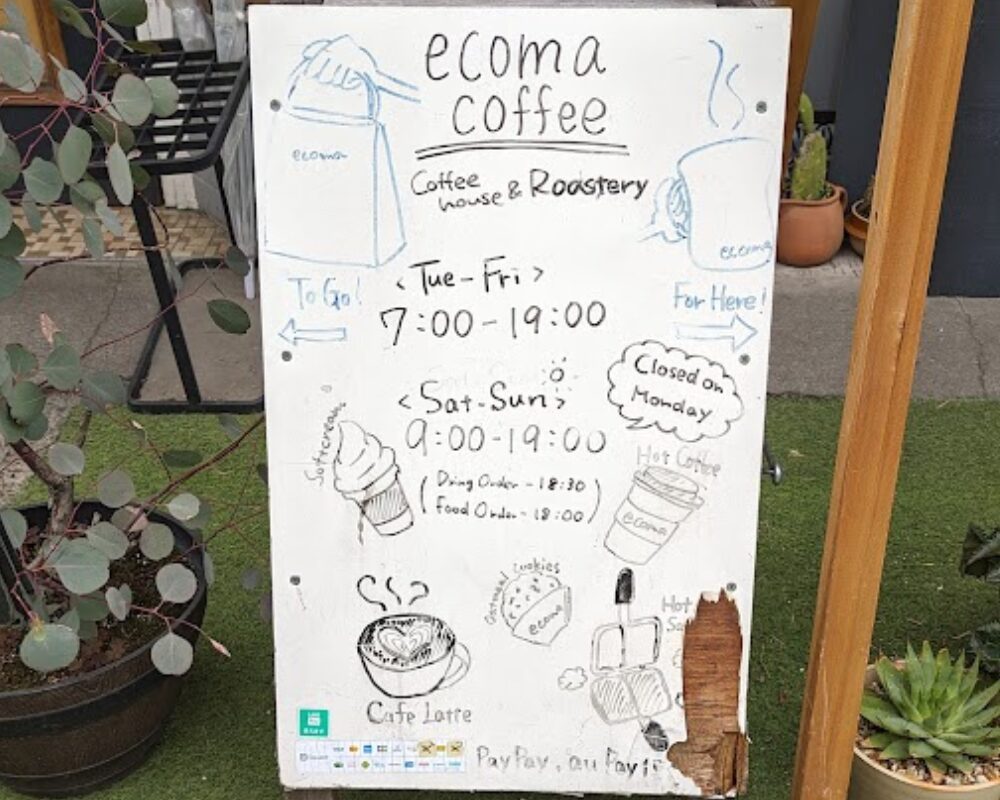 ecoma
coffee
Coffee
house & Roastery
ecoma
ecoma
To Go!
For Here!
< Tue - Fri >
7:00 - 19:00
Closed on
Monday
< Sat - Sun >
9:00 - 19:00
(Dring Order - 18:30
Food Order - 18:00)
Softcream
Hot Coffee
ecoma
Oatmeal Cookies
ecoma
Hot
Cafe Latte
PayPay, au Pay